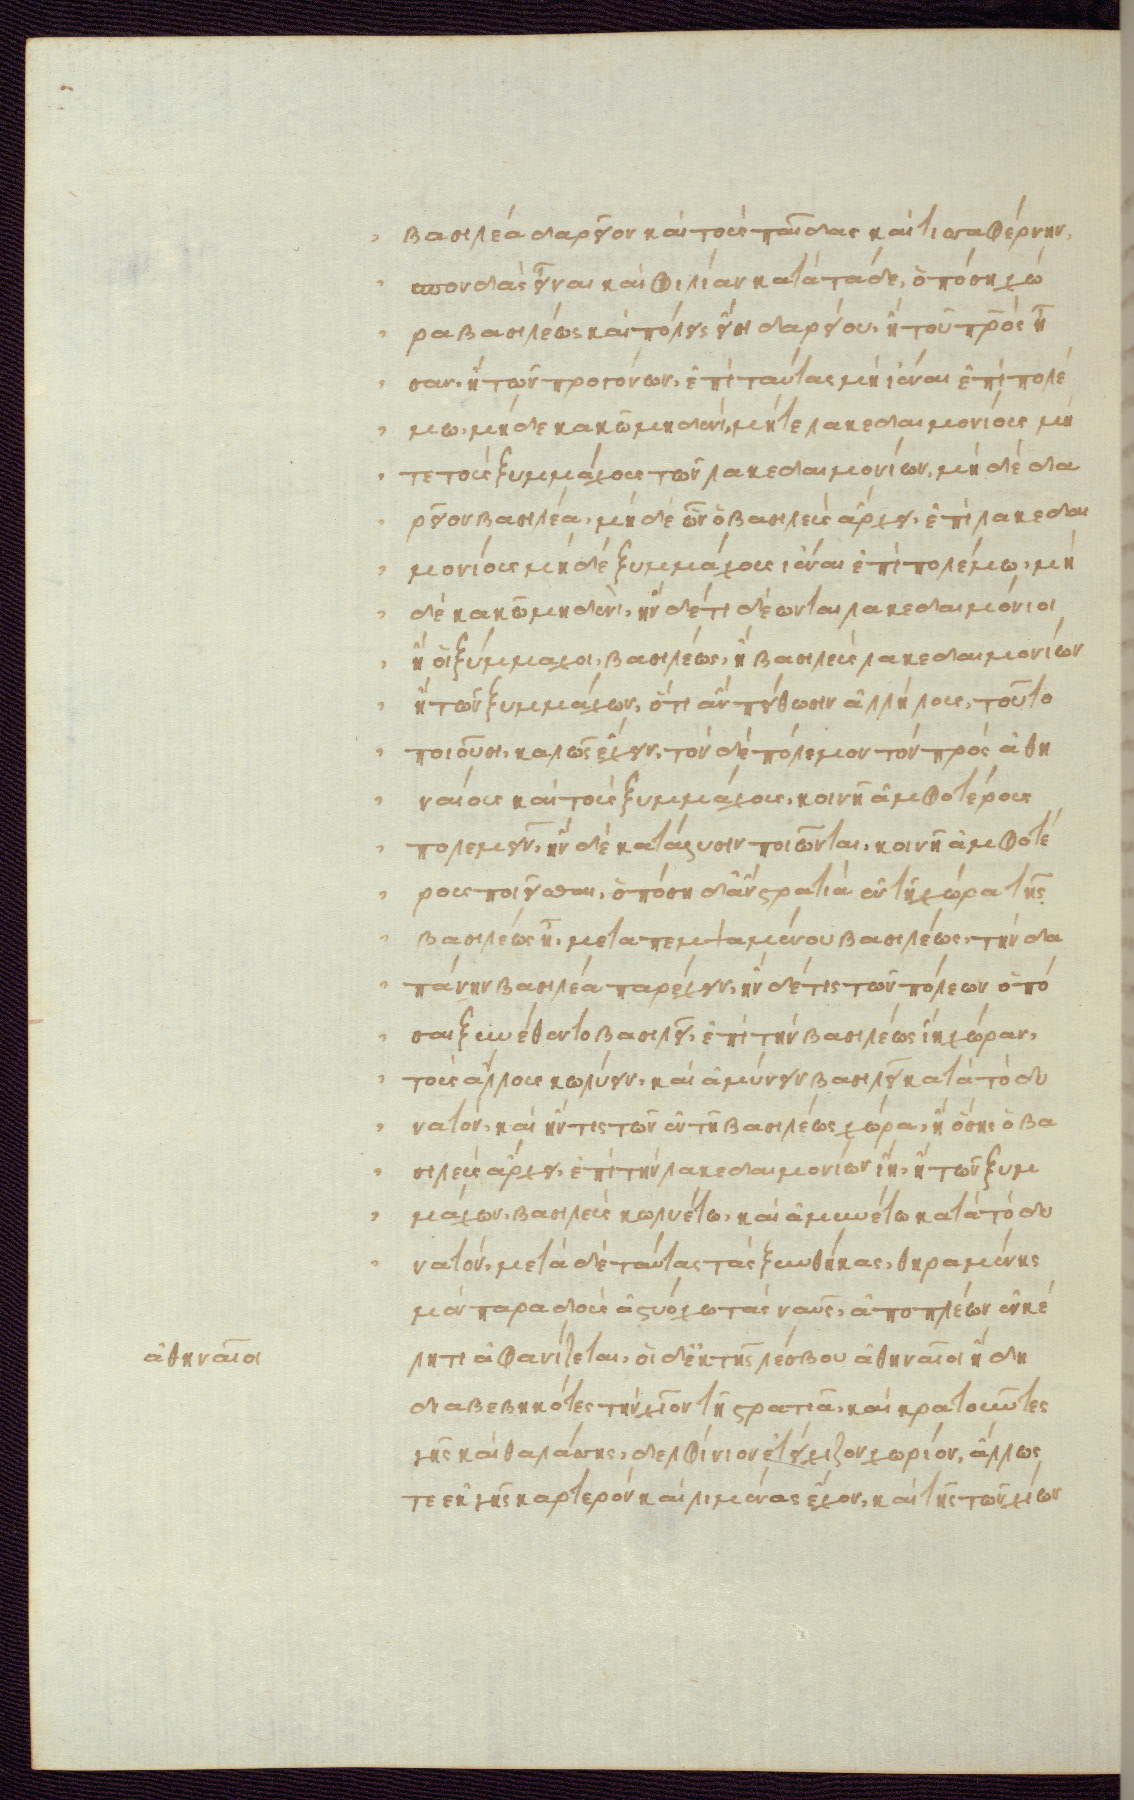 βασιλέα δαρεῖον καὶ τοὺς παῖδας καὶ τισσαφέρνην,
σπονδὰς εἶναι καὶ φιλίαν κατὰ τάδε, ὁπόση χώ
ρα βασιλέως καὶ πόλεις εἰσὶ δαρείου, ἢ τοῦ πρὸς ἦ
σαν, ἢ τῶν προγόνων, ἐπὶ ταύτας μὴ ἰέναι ἐπὶ πολέ
μω, μηδὲ κακῶ μηδενὶ, μήτε λακεδαιμονίους μή
τε τοὺς ξυμμάχους τῶν λακεδαιμονίων, μηδὲ δα
ρεῖον βασιλέα, μηδὲ ὧν ὁ βασιλεὺς ἄρχει, ἐπὶ λακεδαι
μονίους μηδὲ ξυμμάχους ἰέναι ἐπὶ πολέμω, μη
δὲ κακῶ μηδενὶ, ἢν δέ τι δέωνται λακεδαιμόνιοι
ἢ οἱ ξύμμαχοι, βασιλέως, ἢ βασιλεὺς λακεδαιμονίων
ἢ τῶν ξυμμάχων, ὅτι ἂν πείθωσιν ἀλλήλους, τοῦτο
ποιοῦσι, καλῶς ἔχειν, τὸν δὲ πόλεμον τὸν πρὸς ἀθη
ναίους καὶ τοὺς ξυμμάχους, κοινῆ ἀμφοτέρους
πολεμεῖν, ἢν δὲ κατάλυσιν ποιῶνται, κοινῆ ἀμφοτέ
ρους ποιεῖσθαι, ὁπόση δ' ἂν στρατιὰ ἐν τῆ χώρα τῆς
βασιλέως ἦ, μεταπεμψαμένου βασιλέως, τὴν δα
πάνην βασιλέα παρέχειν, ἢν δέ τις τῶν πόλεων ὁπό
σαι ξυνέθεντο βασιλεῖ, ἐπὶ τὴν βασιλέως ἴη χώραν,
τοὺς ἄλλους κωλύειν, καὶ ἀμύνειν βασιλεῖ κατὰ τὸ δυ
νατόν, καὶ ἤν τις τῶν ἐν τῆ βασιλέως χώρα, ἢ ὅσης ὁ βα
σιλεὺς ἄρχει, ἐπὶ τὴν λακεδαιμονίων ἴη, ἢ τῶν ξυμ
μάχων, βασιλεὺς κωλυέτω, καὶ ἀμυνέτω κατὰ τὸ δυ
νατόν, μετὰ δὲ ταύτας τὰς ξυνθήκας, θηραμένης
μὲν παραδοὺς ἀστυόχω τὰς ναῦς, ἀποπλέων ἐν κέ
λητι ἀφανίζεται, οἱ δ' ἐκ τῆς λέσβου ἀθηναῖοι ἤδη
διαβεβηκότες τὴν χῖον τῆ στρατιᾶ, καὶ κρατοῦντες
γῆς καὶ θαλάσσης, δελφίνιον ἐτείχιζον χωρίον, ἄλλως
τε ἐκ γῆς καρτερὸν καὶ λιμένας ἔχον, καὶ τῆς τῶν χίων
ἀθηναῖοι